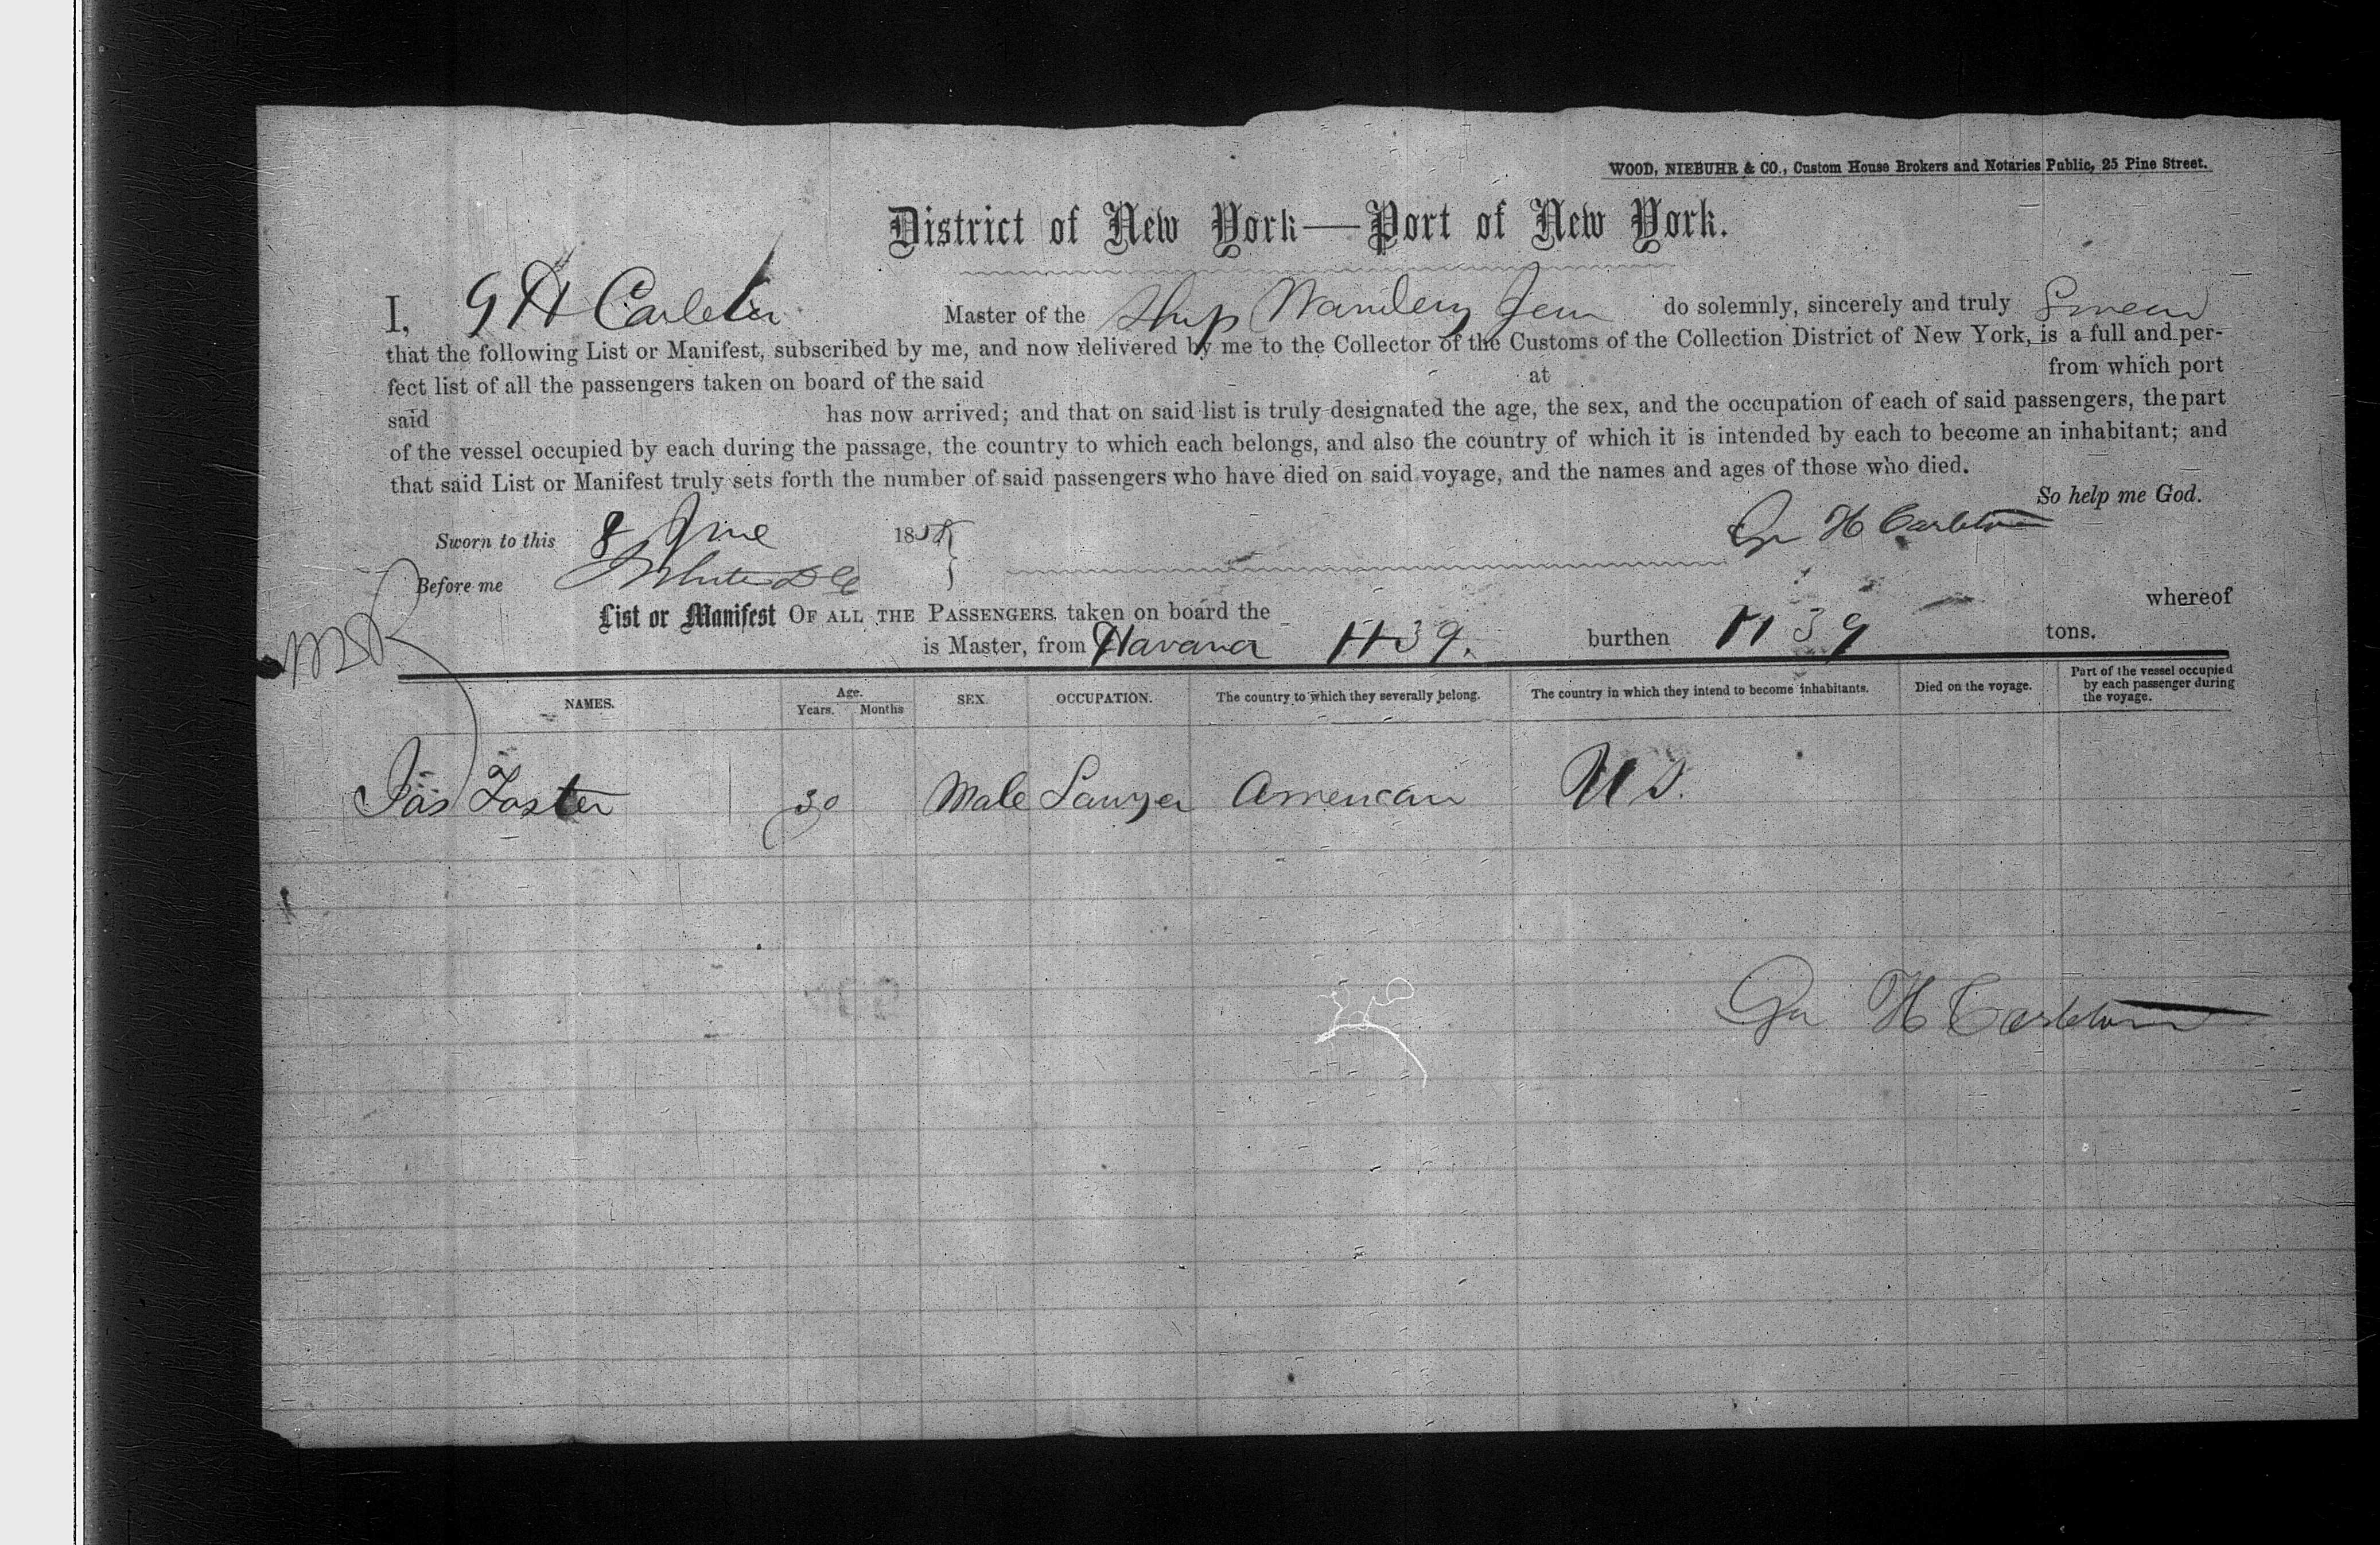 WOOD, NIEBUHR & CO., Custom House Brokers and Notaries Public, 25 Pine Street.
District of New York—Port of New York.
I, G H Carleton Master of the Ship Wandering Jew do solemnly, sincerely and truly Swear
that the following List or Manifest, subscribed by me, and now delivered by me to the Collector of the Customs of the Collection District of New York, is a full and per-
fect list of all the passengers taken on board of the said at from which port
said has now arrived; and that on said list is truly designated the age, the sex, and the occupation of each of said passengers, the part
of the vessel occupied by each during the passage, the country to which each belongs, and also the country of which it is intended by each to become an inhabitant; and
that said List or Manifest truly sets forth the number of said passengers who have died on said voyage, and the names and ages of those who died.
So help me God.
Sworn to this 8 June 185 Geo H Carleton
Before me
List or Manifest OF ALL THE PASSENGERS taken on board the whereof
is Master, from Havana 1139. burthen 1139 tons.
NAMES. Age. Years. Months SEX. OCCUPATION. The country to which they severally belong. The country in which they intend to become inhabitants. Died on the voyage. Part of the vessel occupied by each passenger during the voyage.
Jas Foster 30 Male Lawyer American U S.
Geo H Carleton